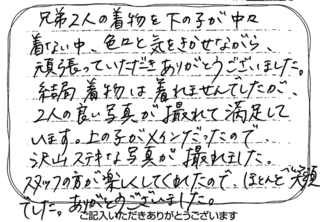 兄弟2人の着物を下の子が中々
着ない中、色々と気をきかせながら、
頑張っていただきありがとうございました。
結局着物は着れませんでしたが、
2人の良い写真が撮れて満足して
います。上の子がメインだったので、
沢山ステキな写真が撮れました。
スタッフの方が楽しくしてくれたので、ほとんど笑顔
でした。ありがとうございました。
ご記入いただきありがとうございます